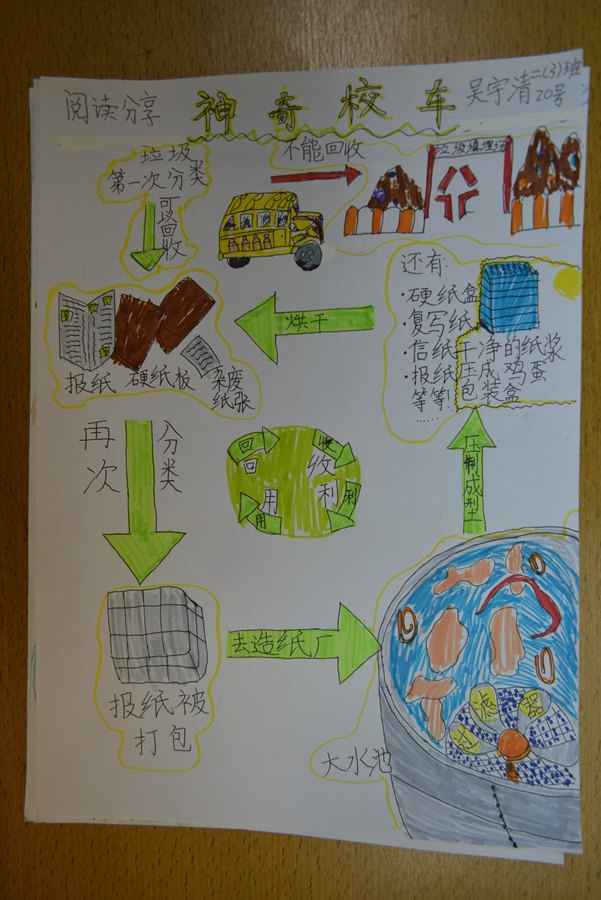 阅读分享
神奇校车
吴宇清二(3)班
20号
垃圾
第一次分类
不能回收
垃圾填埋场
可以回收
报纸
硬纸板
杂废
纸张
烘干
还有:
·硬纸盒
·复写纸
·信纸干净的纸浆
·报纸压成鸡蛋
等等!包装盒
......
再次
分类
回收利用
回收利用
压制成型
报纸被
打包
去造纸厂
大水池
过滤器